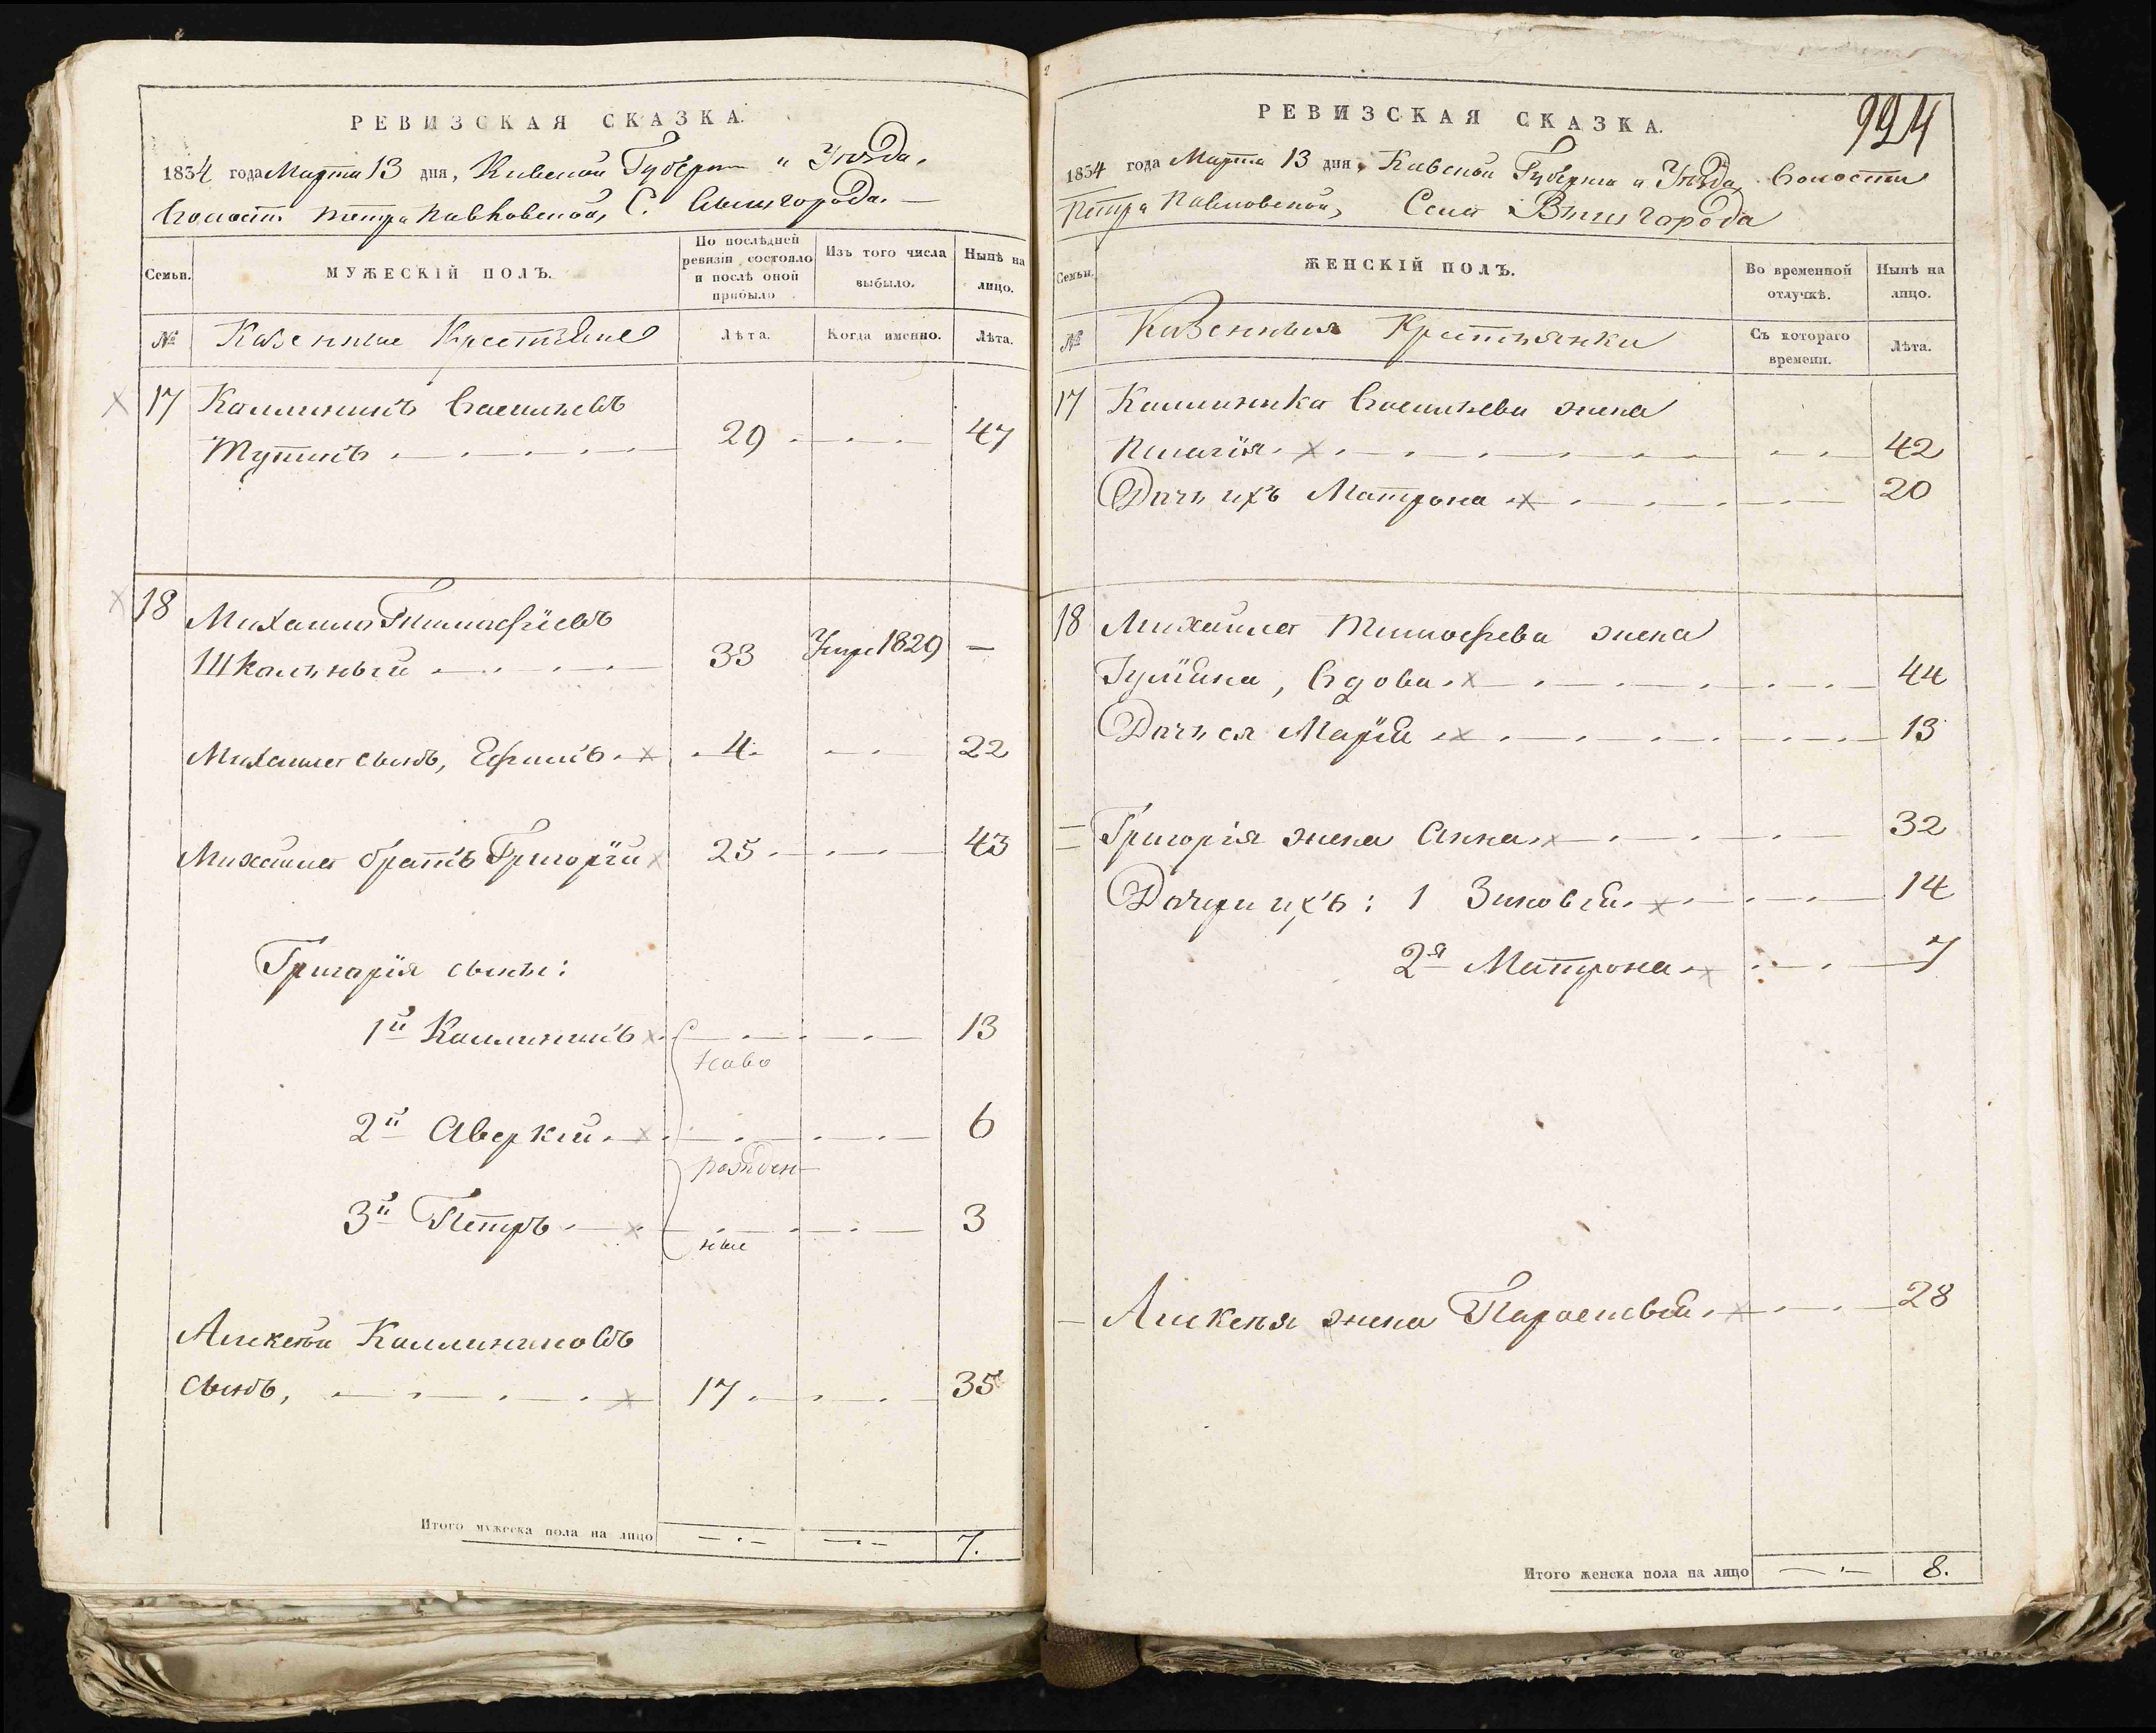 РЕВИЗСКАЯ СКАЗКА.
1834 года Марта 13 дня, Кіевской Губерніи и Уѣзда,
Волости Петра Павловской, С. Вышгорода.
Семьи.
МУЖЕСКІЙ ПОЛЪ.
По послѣдней ревизіи состояло и послѣ оной прибыло
Изъ того числа выбыло.
Нынѣ на лицо.
№ Казенные Крестьяне Лѣта. Когда именно. Лѣта.
17 Каллиникъ Васильевъ
Тупикъ 29 47
18 Михаила Тимофѣевъ
Школьный 33 Умре 1829 —
Михаила сынъ, Ефимъ 4 22
Михаила братъ Григорій 25 43
Григорія сыны:
1й Каллиникъ 13
ново
2й Аверкій 6
рожден
3й Петръ 3
ные
Алексѣй Каллиниковъ
сынъ, 17 35
Итого мужеска пола на лицо 7.
РЕВИЗСКАЯ СКАЗКА.
924
1834 года Марта 13 дня, Кіевской Губерніи и Уѣзда, Волости
Петра Павловской, Села Вышгорода
Семьи.
ЖЕНСКІЙ ПОЛЪ.
Во временной отлучкѣ.
Нынѣ на лицо.
№ Казенныя Крестьянки Съ котораго времени. Лѣта.
17 Каллиника Васильева жена
Пелагія 42
Дочь ихъ Матрона 20
18 Михайла Тимофѣева жена
Гуліана, вдова 44
Дочь ея Марія 13
Григорія жена Анна 32
Дочери ихъ: 1 Зиновія 14
2я Матрона 7
Алексѣя жена Параскевія 28
Итого женска пола на лицо 8.